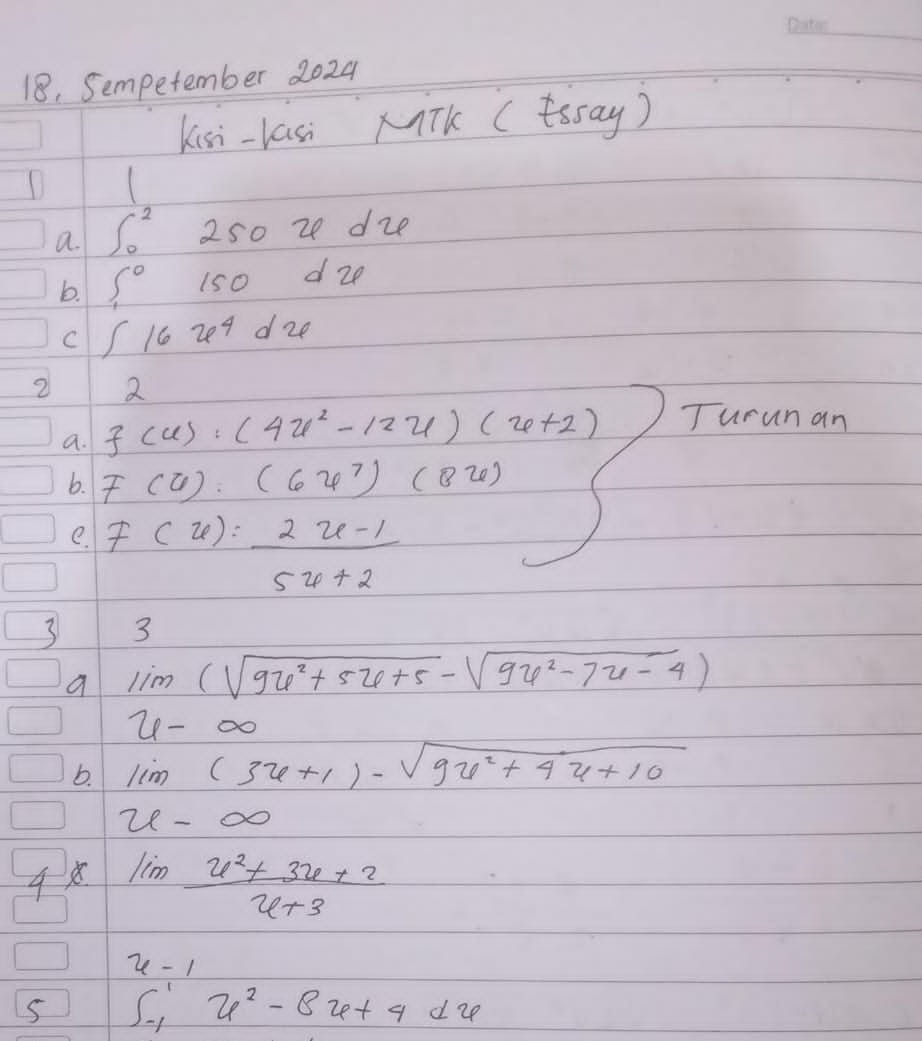 Date:
18. Sempetember 2024
Kisi-kisi MTK (Essay)
1 1
a. ∫₀² 250 x dx
b. ∫₁⁰ 150 dx
c ∫ 16 x⁴ dx
2 2
a. f(x) : (4x² - 12x) (x+2)
Turunan
b. F(x) : (6x⁷) (8x)
c. F(x) : 2x-1
5x+2
3 3
a lim (√9x²+5x+5 - √9x²-7x-4)
x - ∞
b. lim (3x+1) - √9x²+4x+10
x - ∞
4 lim x²+3x+2
x+3
x - 1
5 ∫₋₁¹ x² - 8x+4 dx